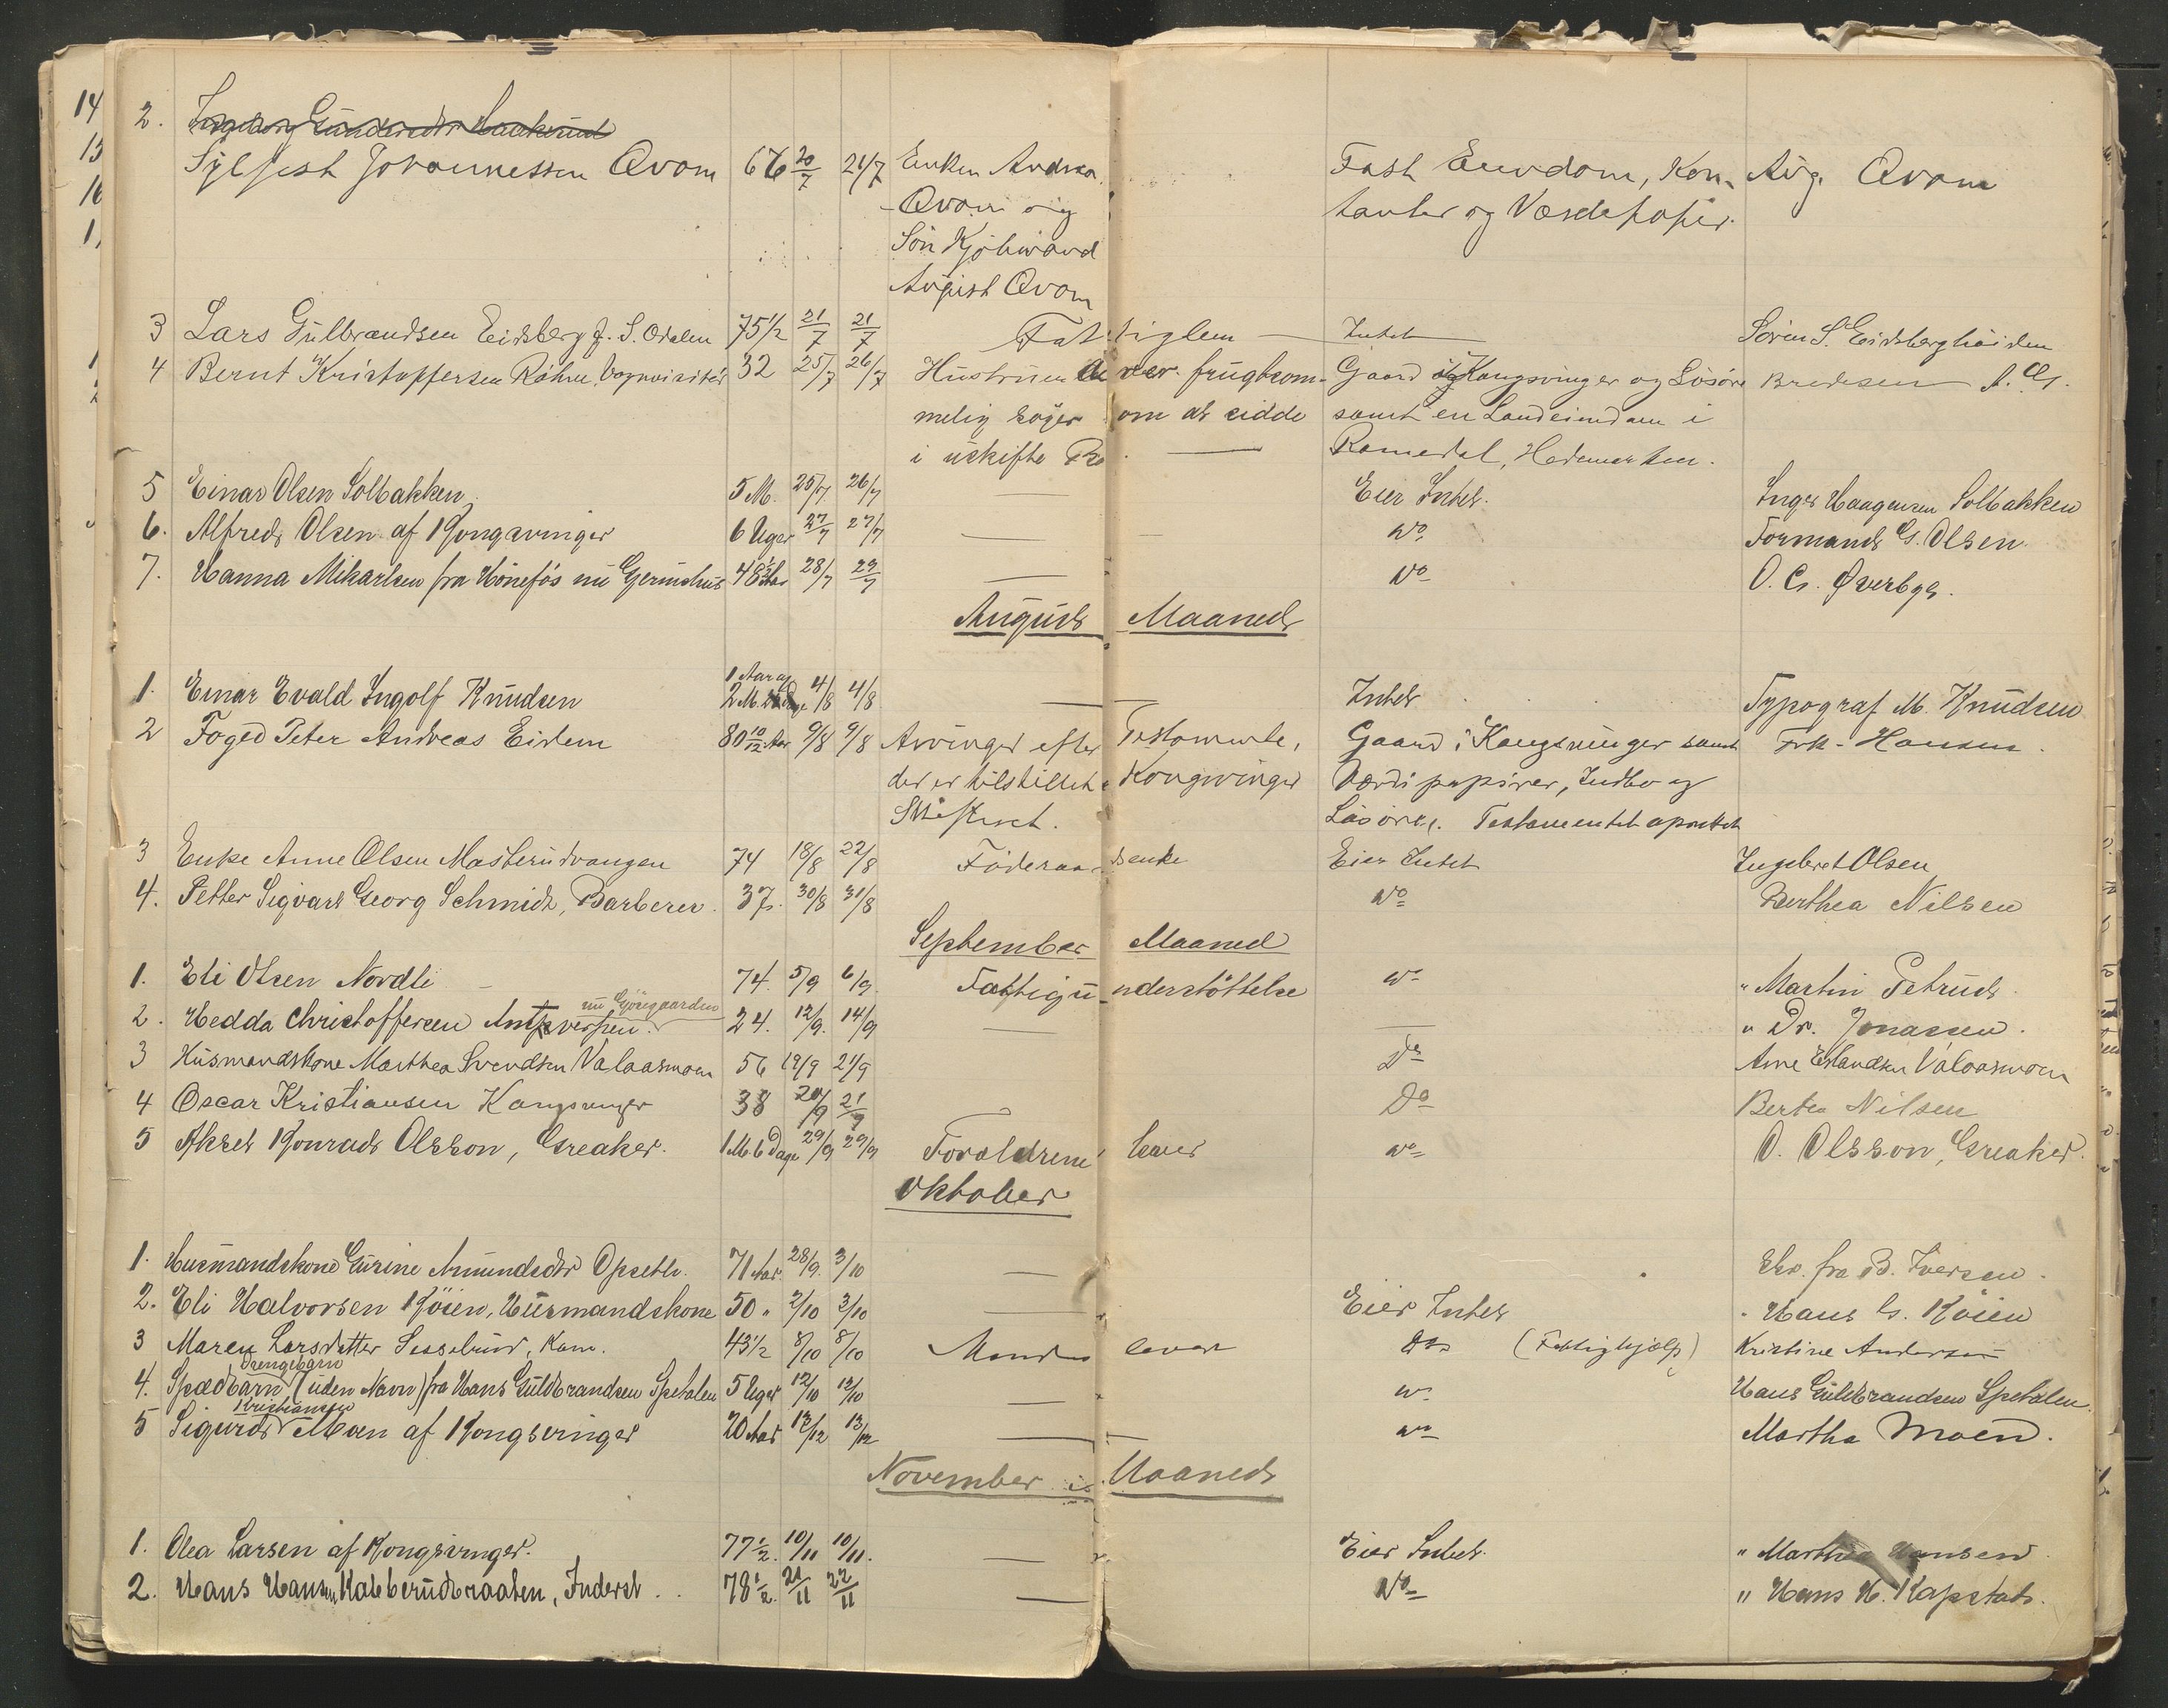 2. Ingeborg Gundersdtr Haakerud
Sylfest Johannessen Qvam 66 20/7 21/7 Enken Andrea Fast Eiendom, Kon- Aug. Qvam
Qvam og tanter og Værdipapir.
Sön Kjöbmand
August Qvam
3 Lars Gulbrandsen Eidsberg f. S. Odalen 75 1/2 21/7 21/7 Fattiglem — Intet Sören S. Eidsberghöiden
4 Bernt Kristoffersen Röhne, Vognvisitör 32 25/7 26/7 Hustruen der er frugtsom- Gaard i Kongsvinger og Lösöre Bredesen
melig söger om at sidde samt en Landeiendom i
i uskifte Bo — Romedal, Hedemarken.
5 Einar Olsen Solbakken 5 M. 25/7 26/7 — Eier Intet. Inger Haagensen Solbakken
6. Alfred Olsen af Kongsvinger 6 Uger 27/7 27/7 — Do Formand G. Olsen
7. Hanna Mikarlsen fra Hönefos nu Gjemshus 48 Aar 28/7 29/7 — Do O. Cs. Øverby
August Maaned
1. Einar Evald Ingolf Knudsen 1 Aar og 2 M. 4/8 4/8 — Intet Typograf M. Knudsen
2 Foged Peter Andreas Eidem 80 10/12 Aar 9/8 9/8 Arvinger efter Testamente, Gaard i Kongsvinger samt Frk. Hansen.
der er tilstillet Kongsvinger Værdipapirer, Indbo og
Skifteret. Lösöre. Testamentet oprettet
3 Enke Anne Olsen Masterudvangen 74 18/8 22/8 Föderaadsenke Eier Intet Ingebret Olsen
4. Petter Sigvart Georg Schmidt, Barberer. 37. 30/8 31/8 Do Berthea Nilsen
September Maaned
1. Eli Olsen Nordli 74. 5/9 6/9. Fattigunderstöttelse Do " Martin Petrud
nu Gjösegaarden
2. Hedda Christoffersen Antverpen. 24. 12/9. 14/9 — — " Dr. Jonassen.
3 Husmandskone Marthea Svendsen Valaasmoen 56 19/9 21/9 Do Arne Erlandsen Valaasmoen
4 Oscar Kristiansen Kongsvinger 38 20/9 21/9 Do Bertea Nilsen
5 Aksel Konrad Olsson, Greaker. 1 M. 6 Dage 29/9 29/9 Forældrene lever Do O. Olsson, Greaker.
Oktober
1. Husmandskone Gurine Amundsdtr Opseth. 71 Aar. 28/9. 3/10 — Skr. fra P. Iversen.
2. Eli Halvorsen Köien, Husmandskone 50 " 2/10 3/10 — Eier Intet " Hans G. Köien
3 Maren Larsdatter Sesselrud, Kone. 43 1/2 8/10 8/10 Manden lever Do (Fattighjælp) Kristine Andersen
Drengebarn
4. Spædbarn (uden Navn) fra Hans Guldbrandsen Spetalen 5 Uger 12/10 12/10 — Do Hans Guldbrandsen Spetalen.
Kristiansen
5 Sigurd Moen af Kongsvinger 20 Aar 13/12 13/12 — Do Martha Moen.
November Maaned
1. Olea Larsen af Kongsvinger. 77 1/2. 10/11 10/11. — Eier Intet. " Marthea Hansen
2. Hans Hansen Kabberudbraaten, Inderst.. 78 1/2. 21/11 22/11 — Do " Hans H. Kapstad.
14
15
16